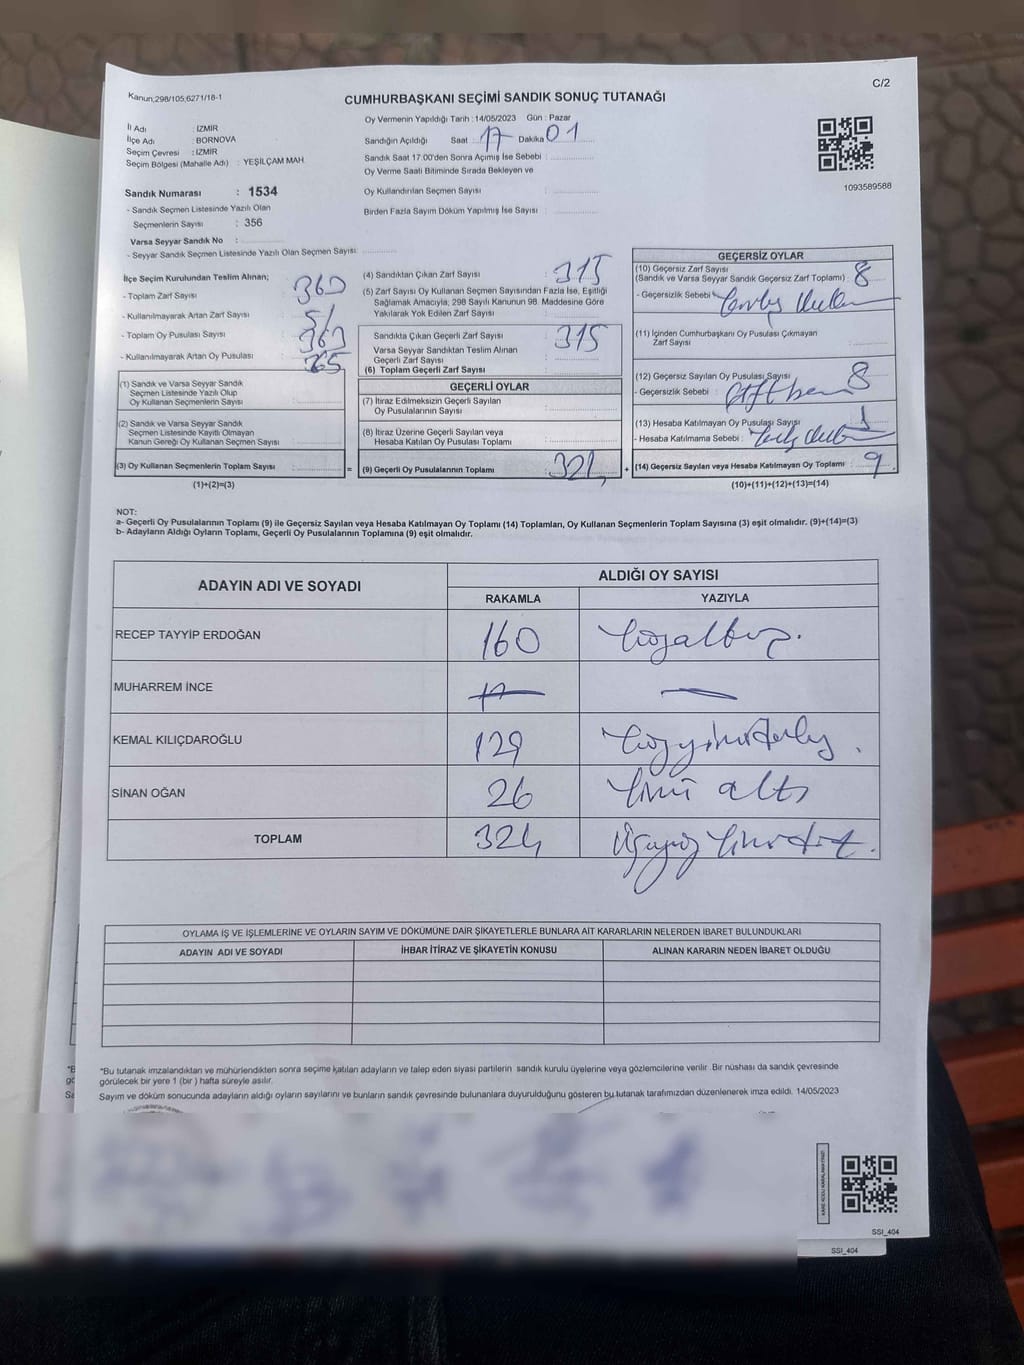 Kanun;298/105;6271/18-1
C/2
CUMHURBAŞKANI SEÇİMİ SANDIK SONUÇ TUTANAĞI
İl Adı : İZMİR
İlçe Adı : BORNOVA
Seçim Çevresi : İZMİR
Seçim Bölgesi (Mahalle Adı) : YEŞİLÇAM MAH.
Sandık Numarası : 1534
- Sandık Seçmen Listesinde Yazılı Olan
Seçmenlerin Sayısı : 356
Varsa Seyyar Sandık No :
- Seyyar Sandık Seçmen Listesinde Yazılı Olan Seçmen Sayısı
Oy Vermenin Yapıldığı Tarih : 14/05/2023 Gün : Pazar
Sandığın Açıldığı Saat : 17 Dakika 01
Sandık Saat 17.00'den Sonra Açımış İse Sebebi :
Oy Verme Saati Bitiminde Sırada Bekleyen ve
Oy Kullandırılan Seçmen Sayısı :
Birden Fazla Sayım Döküm Yapılmış İse Sayısı :
1093589588
İlçe Seçim Kurulundan Teslim Alınan;
- Toplam Zarf Sayısı : 360
- Kullanılmayarak Artan Zarf Sayısı :
- Toplam Oy Pusulası Sayısı : 363
- Kullanılmayarak Artan Oy Pusulası :
(1) Sandık ve Varsa Seyyar Sandık
Seçmen Listesinde Yazılı Olup
Oy Kullanan Seçmenlerin Sayısı :
(2) Sandık ve Varsa Seyyar Sandık
Seçmen Listesinde Kayıtlı Olmayan
Kanun Gereği Oy Kullanan Seçmen Sayısı :
(3) Oy Kullanan Seçmenlerin Toplam Sayısı : =
(1)+(2)=(3)
(4) Sandıktan Çıkan Zarf Sayısı : 315
(5) Zarf Sayısı Oy Kullanan Seçmen Sayısından Fazla İse, Eşitliği
Sağlamak Amacıyla, 298 Sayılı Kanunun 98. Maddesine Göre
Yakılarak Yok Edilen Zarf Sayısı :
Sandıkta Çıkan Geçerli Zarf Sayısı : 315
Varsa Seyyar Sandıktan Teslim Alınan
Geçerli Zarf Sayısı :
(6) Toplam Geçerli Zarf Sayısı :
GEÇERLİ OYLAR
(7) İtiraz Edilmeksizin Geçerli Sayılan
Oy Pusulalarının Sayısı :
(8) İtiraz Üzerine Geçerli Sayılan veya
Hesaba Katılan Oy Pusulası Toplamı :
(9) Geçerli Oy Pusulalarının Toplamı : +
GEÇERSİZ OYLAR
(10) Geçersiz Zarf Sayısı
(Sandık ve Varsa Seyyar Sandık Geçersiz Zarf Toplamı) : 8
- Geçersizlik Sebebi :
(11) İçinden Cumhurbaşkanı Oy Pusulası Çıkmayan
Zarf Sayısı :
(12) Geçersiz Sayılan Oy Pusulası Sayısı : 8
- Geçersizlik Sebebi :
(13) Hesaba Katılmayan Oy Pusulası Sayısı : 1
- Hesaba Katılmama Sebebi :
(14) Geçersiz Sayılan veya Hesaba Katılmayan Oy Toplamı : 9
(10)+(11)+(12)+(13)=(14)
NOT:
a- Geçerli Oy Pusulalarının Toplamı (9) ile Geçersiz Sayılan veya Hesaba Katılmayan Oy Toplamı (14) Toplamları, Oy Kullanan Seçmenlerin Toplam Sayısına (3) eşit olmalıdır. (9)+(14)=(3)
b- Adayların Aldığı Oyların Toplamı, Geçerli Oy Pusulalarının Toplamına (9) eşit olmalıdır.
ADAYIN ADI VE SOYADI
ALDIĞI OY SAYISI
RAKAMLA YAZIYLA
RECEP TAYYİP ERDOĞAN 160
MUHARREM İNCE
KEMAL KILIÇDAROĞLU 129
SİNAN OĞAN 26 altı
TOPLAM 324
OYLAMA İŞ VE İŞLEMLERİNE VE OYLARIN SAYIM VE DÖKÜMÜNE DAİR ŞİKAYETLERLE BUNLARA AİT KARARLARIN NELERDEN İBARET BULUNDUKLARI
ADAYIN ADI VE SOYADI İHBAR İTİRAZ VE ŞİKAYETİN KONUSU ALINAN KARARIN NEDEN İBARET OLDUĞU
"Bu tutanak imzalandıktan ve mühürlendikten sonra seçime katılan adayların ve talep eden siyasi partilerin sandık kurulu üyelerine veya gözlemcilerine verilir. Bir nüshası da sandık çevresinde
görülecek bir yere 1 (bir ) hafta süreyle asılır.
Sayım ve döküm sonucunda adayların aldığı oyların sayılarını ve bunların sandık çevresinde bulunanlara duyurulduğunu gösteren bu tutanak tarafımızdan düzenlenerek imza edildi. 14/05/2023
SSI_404
SSI_404